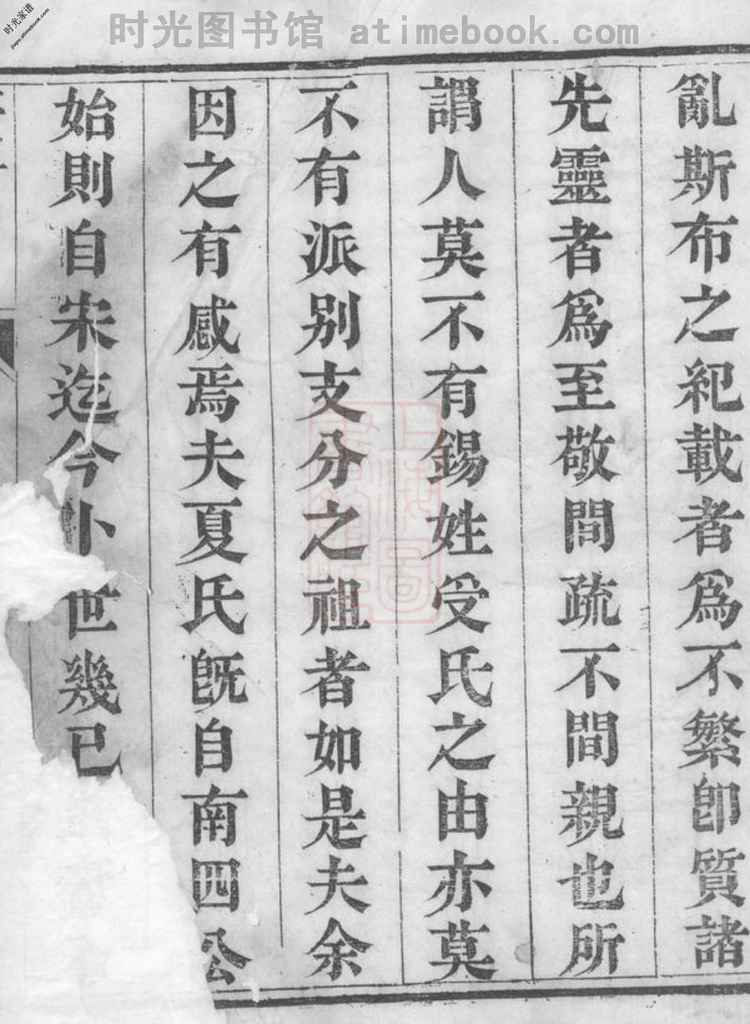 时光图书馆 atimebook.com
时光家谱
jiapu.atimebook.com
亂斯布之紀載者爲不繁卽質諸
先靈者爲至敬問疏不間親也所
謂人莫不有錫姓受氏之由亦莫
不有派别支分之祖者如是夫余
因之有感焉夫夏氏旣自南四公
始則自宋迄今卜世幾已